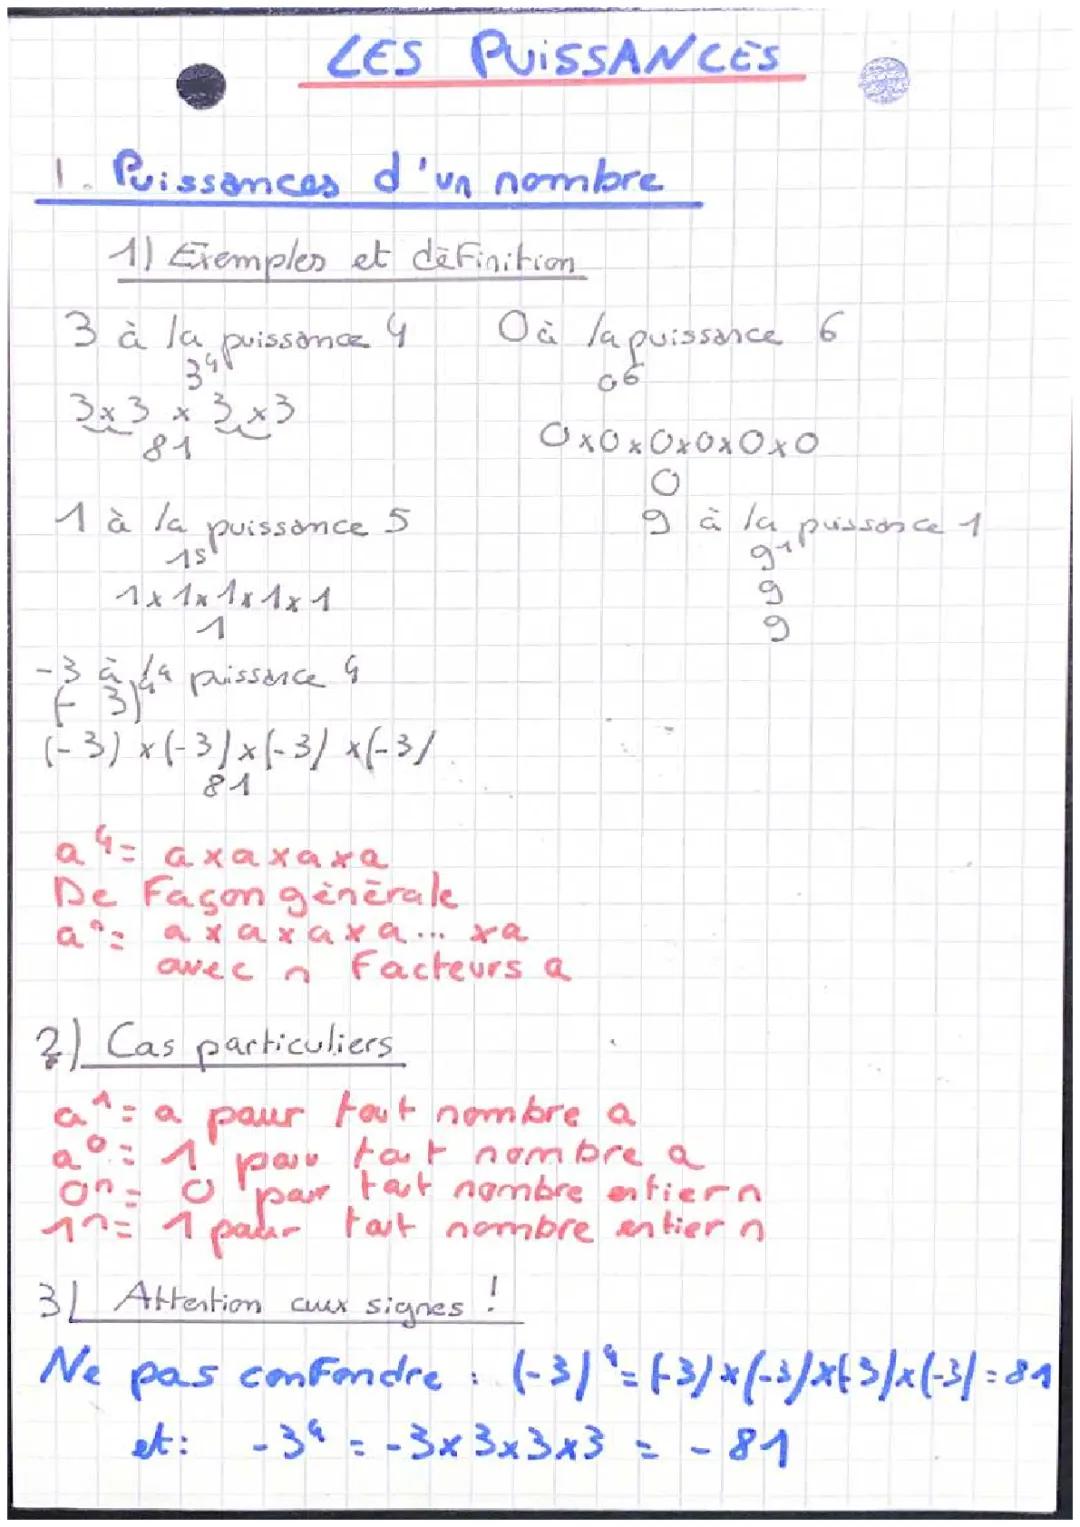 LES PUISSANCES
1. Puissances d'un nombre
1) Exemples et définition
3 à la puissance 4
3⁴
3x3 x 3x3
81
0 à la puissance 6
0⁶
0x0x0x0x0x0
0
1 à la puissance 5
1⁵
1x1x1x1x1
1
9 à la puissance 1
9¹
9
9
-3 à la puissance 4
(-3)⁴
(-3) x(-3)x(-3) x(-3)
81
a⁴= axaxaxa
De Façon générale
aⁿ= axaxaxa... xa
avec n Facteurs a
2) Cas particuliers
a¹= a pour tout nombre a
a⁰= 1 pour tout nombre a
0ⁿ= 0 pour tout nombre entier n
1ⁿ= 1 pour tout nombre entier n
3) Attention aux signes !
Ne pas confondre : (-3)⁴=(-3)x(-3)x(-3)x(-3)=81
et: -3⁴ = -3x3x3x3 = -81